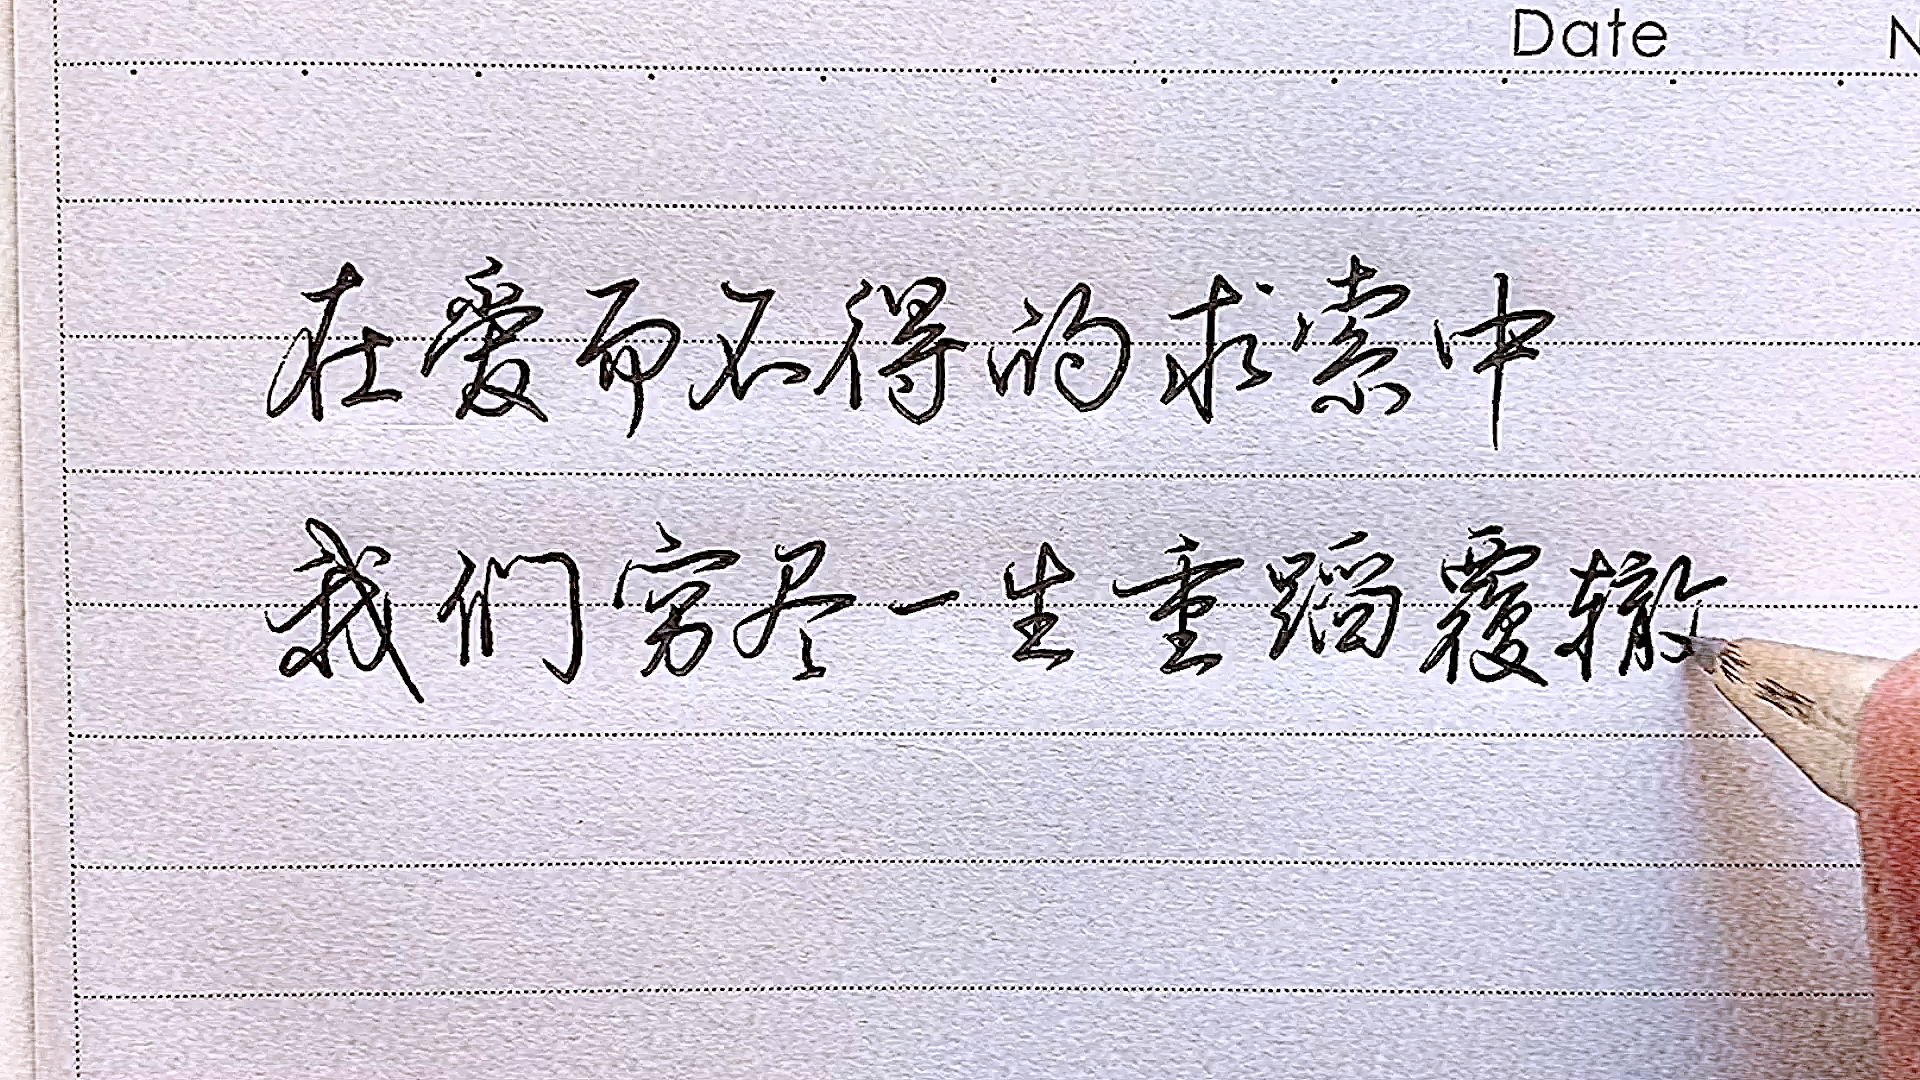 Date N
在爱而不得的求索中
我们穷尽一生重蹈覆辙